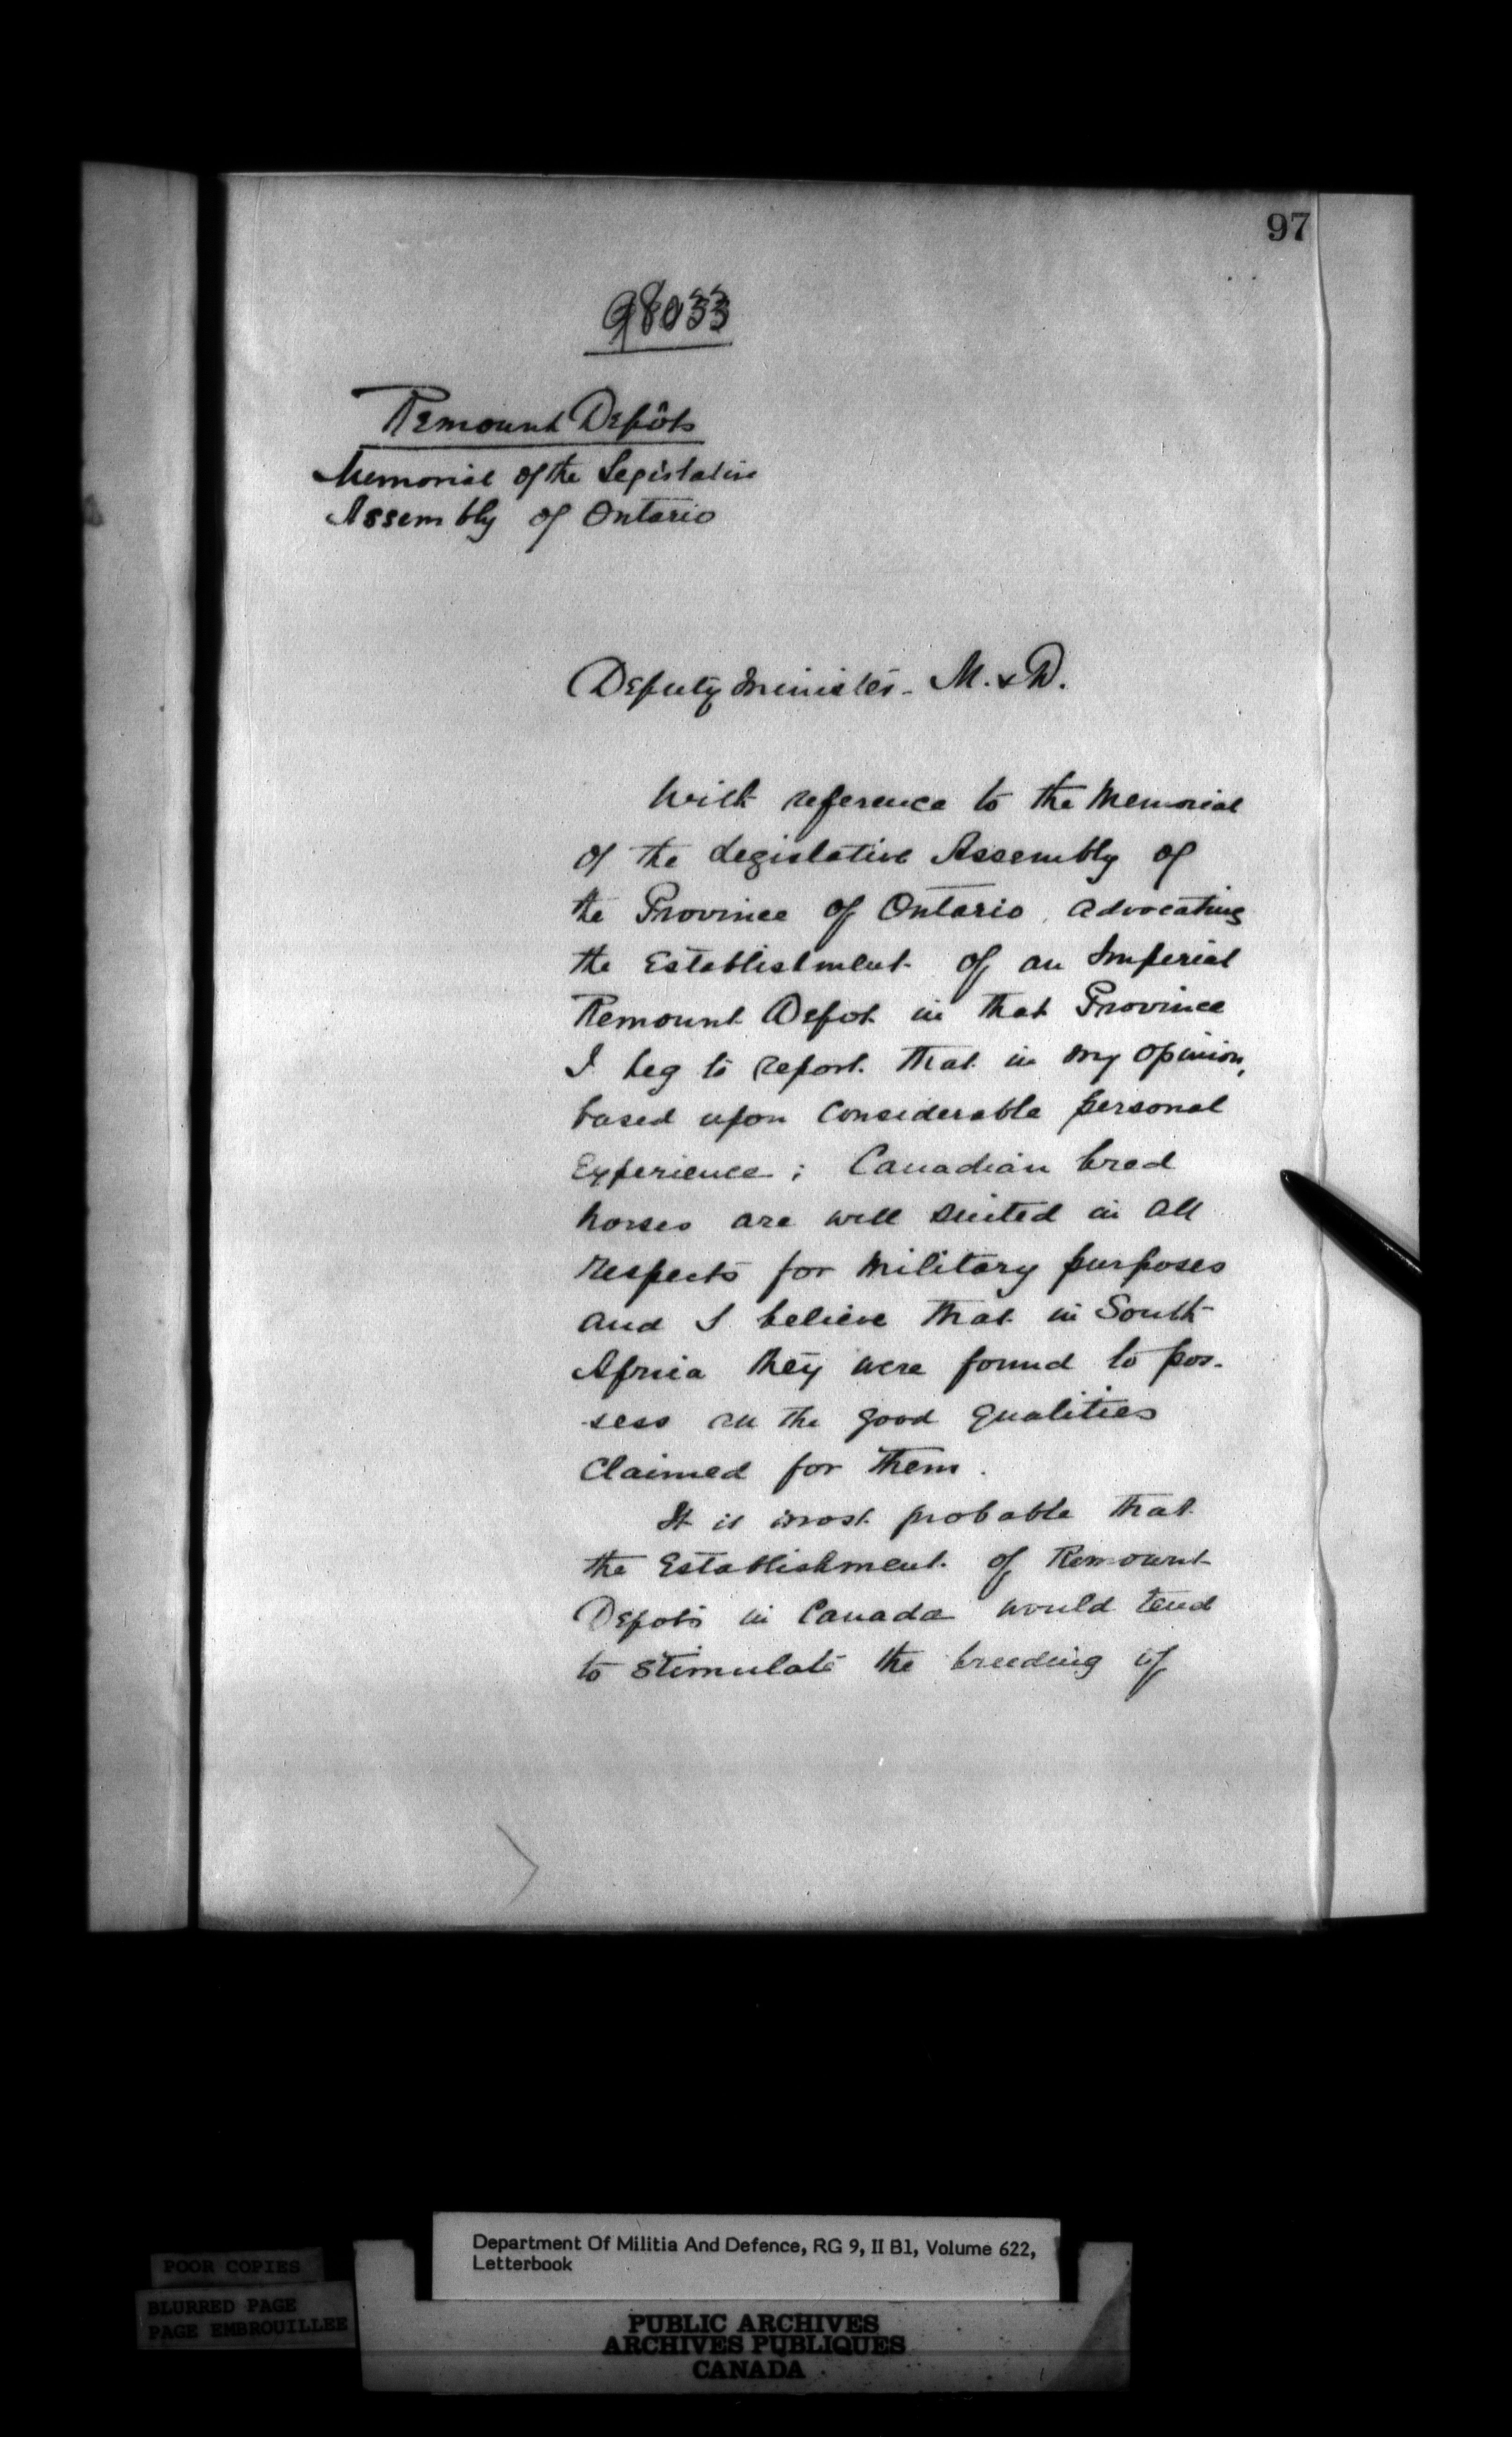 97
98033
Remount Depôts
Memorial of the Legislative
Assembly of Ontario
Deputy Minister - M. & D.
With reference to the Memorial
of the Legislative Assembly of
the Province of Ontario, advocating
the Establishment of an Imperial
Remount Depot in that Province
I beg to report that in my opinion,
based upon considerable personal
Experience; Canadian bred
horses are well suited in all
respects for military purposes
and I believe that in South
Africa they were found to pos-
-sess all the good qualities
claimed for them.
It is most probable that
the Establishment of Remount
Depots in Canada would tend
to stimulate the breeding of
Department Of Militia And Defence, RG 9, II B1, Volume 622,
Letterbook
POOR COPIES
BLURRED PAGE
PAGE EMBROUILLEE
PUBLIC ARCHIVES
ARCHIVES PUBLIQUES
CANADA